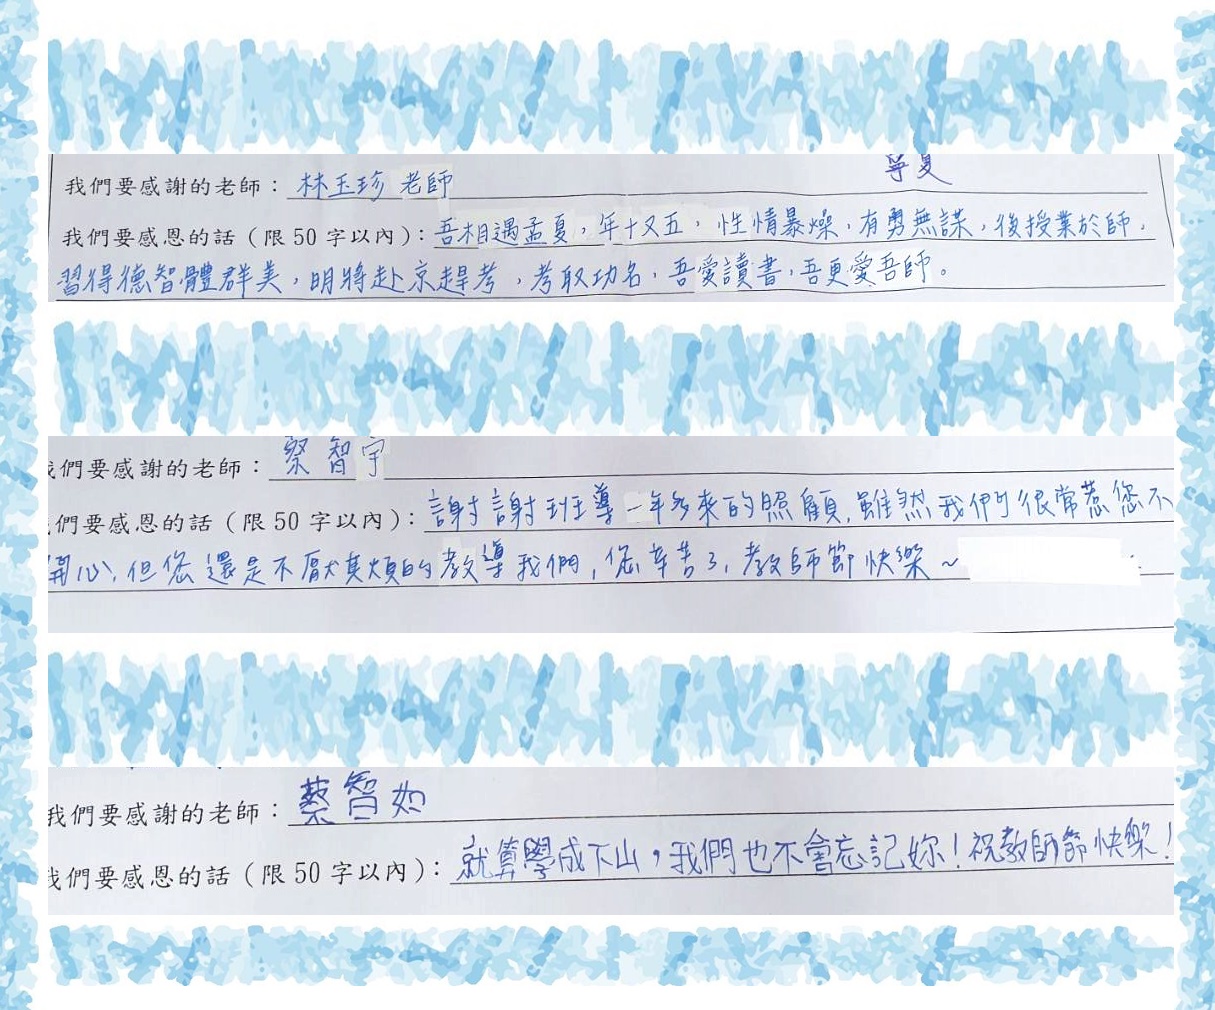 寧夏
我們要感謝的老師：林玉珍 老師
我們要感恩的話（限50字以內）：吾相遇孟夏，年十又五，性情暴燥，有勇無謀，後授業於師，
習得德智體群美，明將赴京趕考，考取功名，吾愛讀書，吾更愛吾師。
我們要感謝的老師：蔡智宇
我們要感恩的話（限50字以內）：謝謝班導一年多來的照顧，雖然我們很常惹您不
開心，但您還是不厭其煩的教導我們，您辛苦了，教師節快樂～
我們要感謝的老師：蔡智如
我們要感恩的話（限50字以內）：就算學成下山，我們也不會忘記妳！祝教師節快樂！